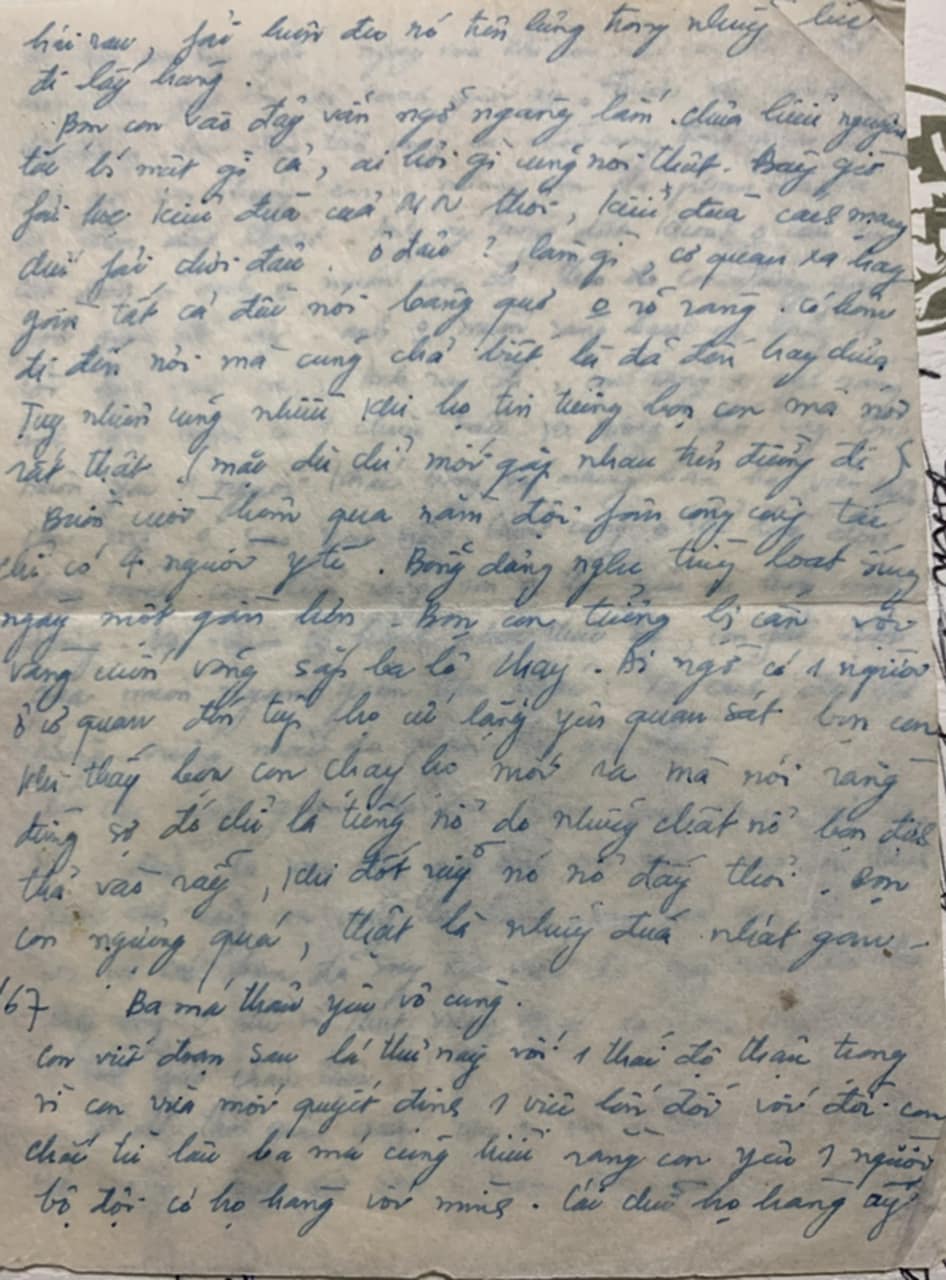 hái rau, fải luôn đeo nó trên lưng trong những lúc
đi lấy hàng.
Bọn con vào đây vẫn ngỡ ngàng lắm. chưa hiểu nguyên
tắc bí mật gì cả, ai hỏi gì cũng nói thật. Bây giờ
fải học kiểu đùa của MN thôi, kiểu đùa cách mạng
chứ fải chơi đâu. ở đâu?, làm gì, cơ quan xa hay
gần tất cả đều nói bâng quơ o rõ ràng. có hôm
đi đến nơi mà cũng chả biết là đã đến hay chưa
Tuy nhiên cũng nhiều khi họ tin tưởng bọn con mà nói
rất thật (mặc dù chỉ mới gặp nhau trên đường đi)
Buổi cuối hôm qua nằm đợi fân công công tác
chỉ có 4 người y tế. Bỗng dưng nghe tiếng loạt súng
ngày một gần hơn. Bọn con tưởng bị càn vội
vàng cuốn võng sắp ba lô chạy. Ai ngờ có 1 người
ở cơ quan đến tiếp họ cứ lẳng yên quan sát bọn con
khi thấy bọn con chạy họ mới ra mà nói rằng
đừng sợ đó chỉ là tiếng nổ do những chất nổ bọn địch
thả vào rẫy, khi đốt rẫy nó nổ đấy thôi. Bọn
con ngượng quá, thật là những đứa nhát gan.
/67 Ba má thân yêu vô cùng.
con viết đoạn sau lá thư này với 1 thái độ thận trọng
vì con vừa mới quyết định 1 việc lớn đối với đời con
chắc từ lâu ba má cũng hiểu rằng con yêu 1 người
bộ đội có họ hàng với mình. Cái chữ họ hàng ấy